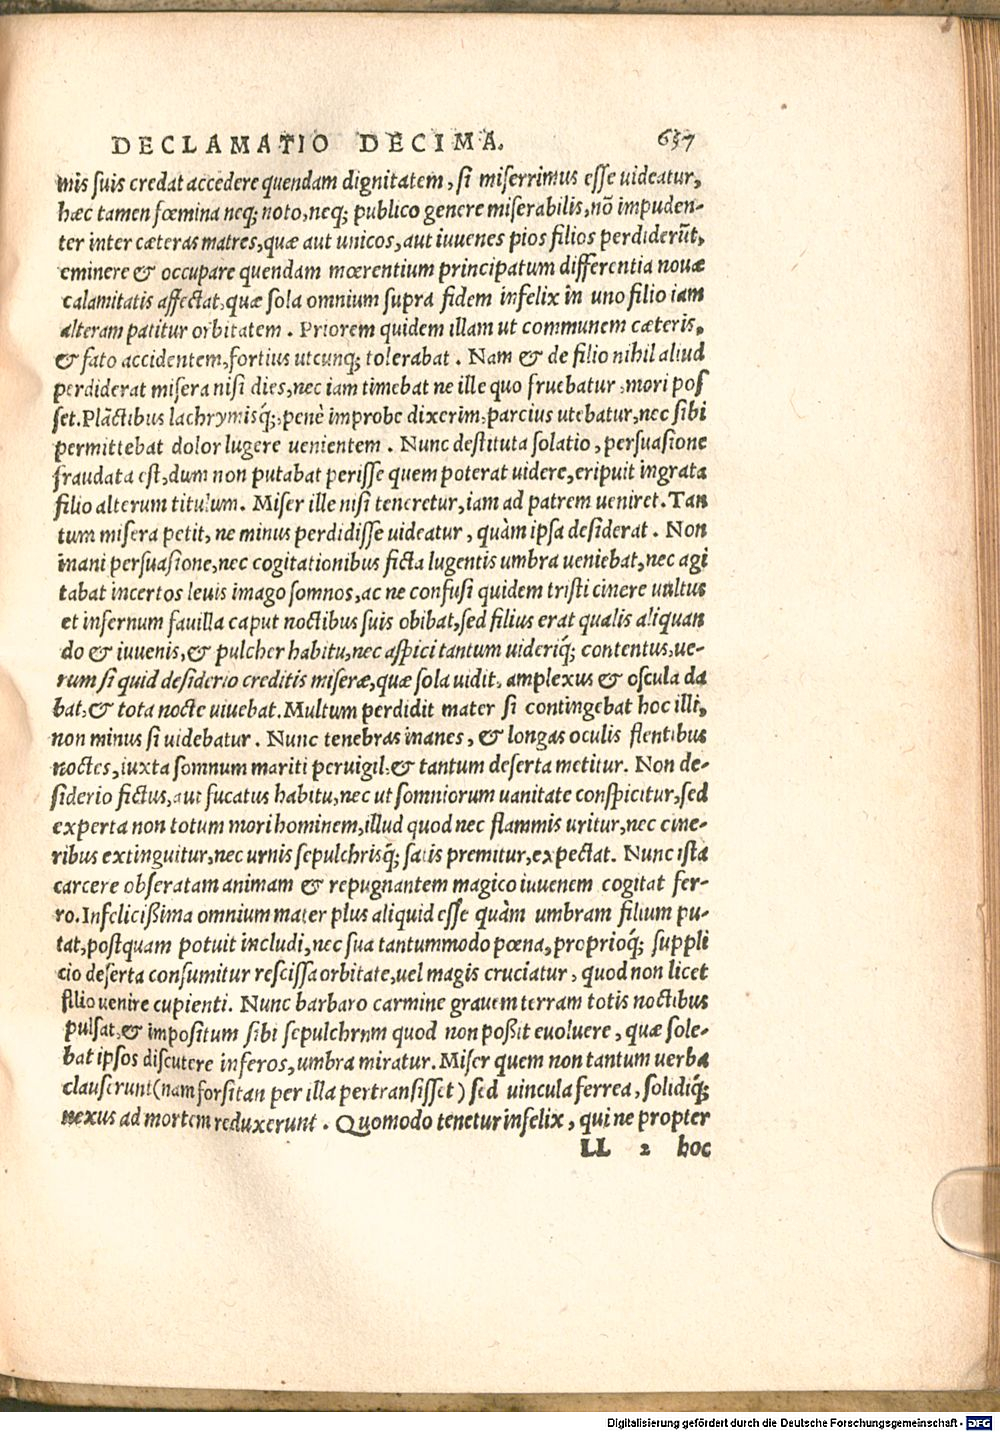 DECLAMATIO DECIMA. 637
mis suis credat accedere quendam dignitatem, si miserrimus esse uideatur,
hæc tamen fœmina neq; noto, neq; publico genere miserabilis, nō impuden-
ter inter cæteras matres, quæ aut unicos, aut iuuenes pios filios perdiderūt,
eminere & occupare quendam mœrentium principatum differentia nouæ
calamitatis affectat, quæ sola omnium supra fidem infelix in uno filio iam
alteram patitur orbitatem. Priorem quidem illam ut communem cæteris,
& fato accidentem, fortius utcunq; tolerabat. Nam & de filio nihil aliud
perdiderat misera nisi dies, nec iam timebat ne ille quo fruebatur, mori pos
set. Plāctibus lachrymisq́;, penè improbe dixerim, parcius utebatur, nec sibi
permittebat dolor lugere uenientem. Nunc destituta solatio, persuasione
fraudata est, dum non putabat perisse quem poterat uidere, eripuit ingrata
filio alterum titulum. Miser ille nisi teneretur, iam ad patrem ueniret. Tan
tum misera petit, ne minus perdidisse uideatur, quàm ipsa desiderat. Non
inani persuasione, nec cogitationibus ficta lugentis umbra ueniebat, nec agi
tabat incertos leuis imago somnos, ac ne confusi quidem tristi cinere uultus
et infernum fauilla caput noctibus suis obibat, sed filius erat qualis aliquan
do & iuuenis, & pulcher habitu, nec aspici tantum uideriq́; contentus, ue-
rum si quid desiderio creditis miseræ, quæ sola uidit, amplexus & oscula da
bat, & tota nocte uiuebat. Multum perdidit mater si contingebat hoc illi,
non minus si uidebatur. Nunc tenebras inanes, & longas oculis flentibus
noctes, iuxta somnum mariti peruigil, & tantum deserta metitur. Non de-
siderio fictus, aut fucatus habitu, nec ut somniorum uanitate conspicitur, sed
experta non totum mori hominem, illud quod nec flammis uritur, nec cine-
ribus extinguitur, nec urnis sepulchrisq́; satis premitur, expectat. Nunc ista
carcere obseratam animam & repugnantem magico iuuenem cogitat fer-
ro. Infelicißima omnium mater plus aliquid esse quàm umbram filium pu-
tat, postquam potuit includi, nec sua tantummodo pœna, proprioq́; suppli
cio deserta consumitur rescissa orbitate, uel magis cruciatur, quod non licet
filio uenire cupienti. Nunc barbaro carmine grauem terram totis noctibus
pulsat, & impositum sibi sepulchrum quod non poßit euoluere, quæ sole-
bat ipsos discutere inferos, umbra miratur. Miser quem non tantum uerba
clauserunt (nam forsitan per illa pertransisset) sed uincula ferrea, solidiq́;
nexus ad mortem reduxerunt. Quomodo tenetur infelix, qui ne propter
LL 2 hoc
Digitalisierung gefördert durch die Deutsche Forschungsgemeinschaft - DFG